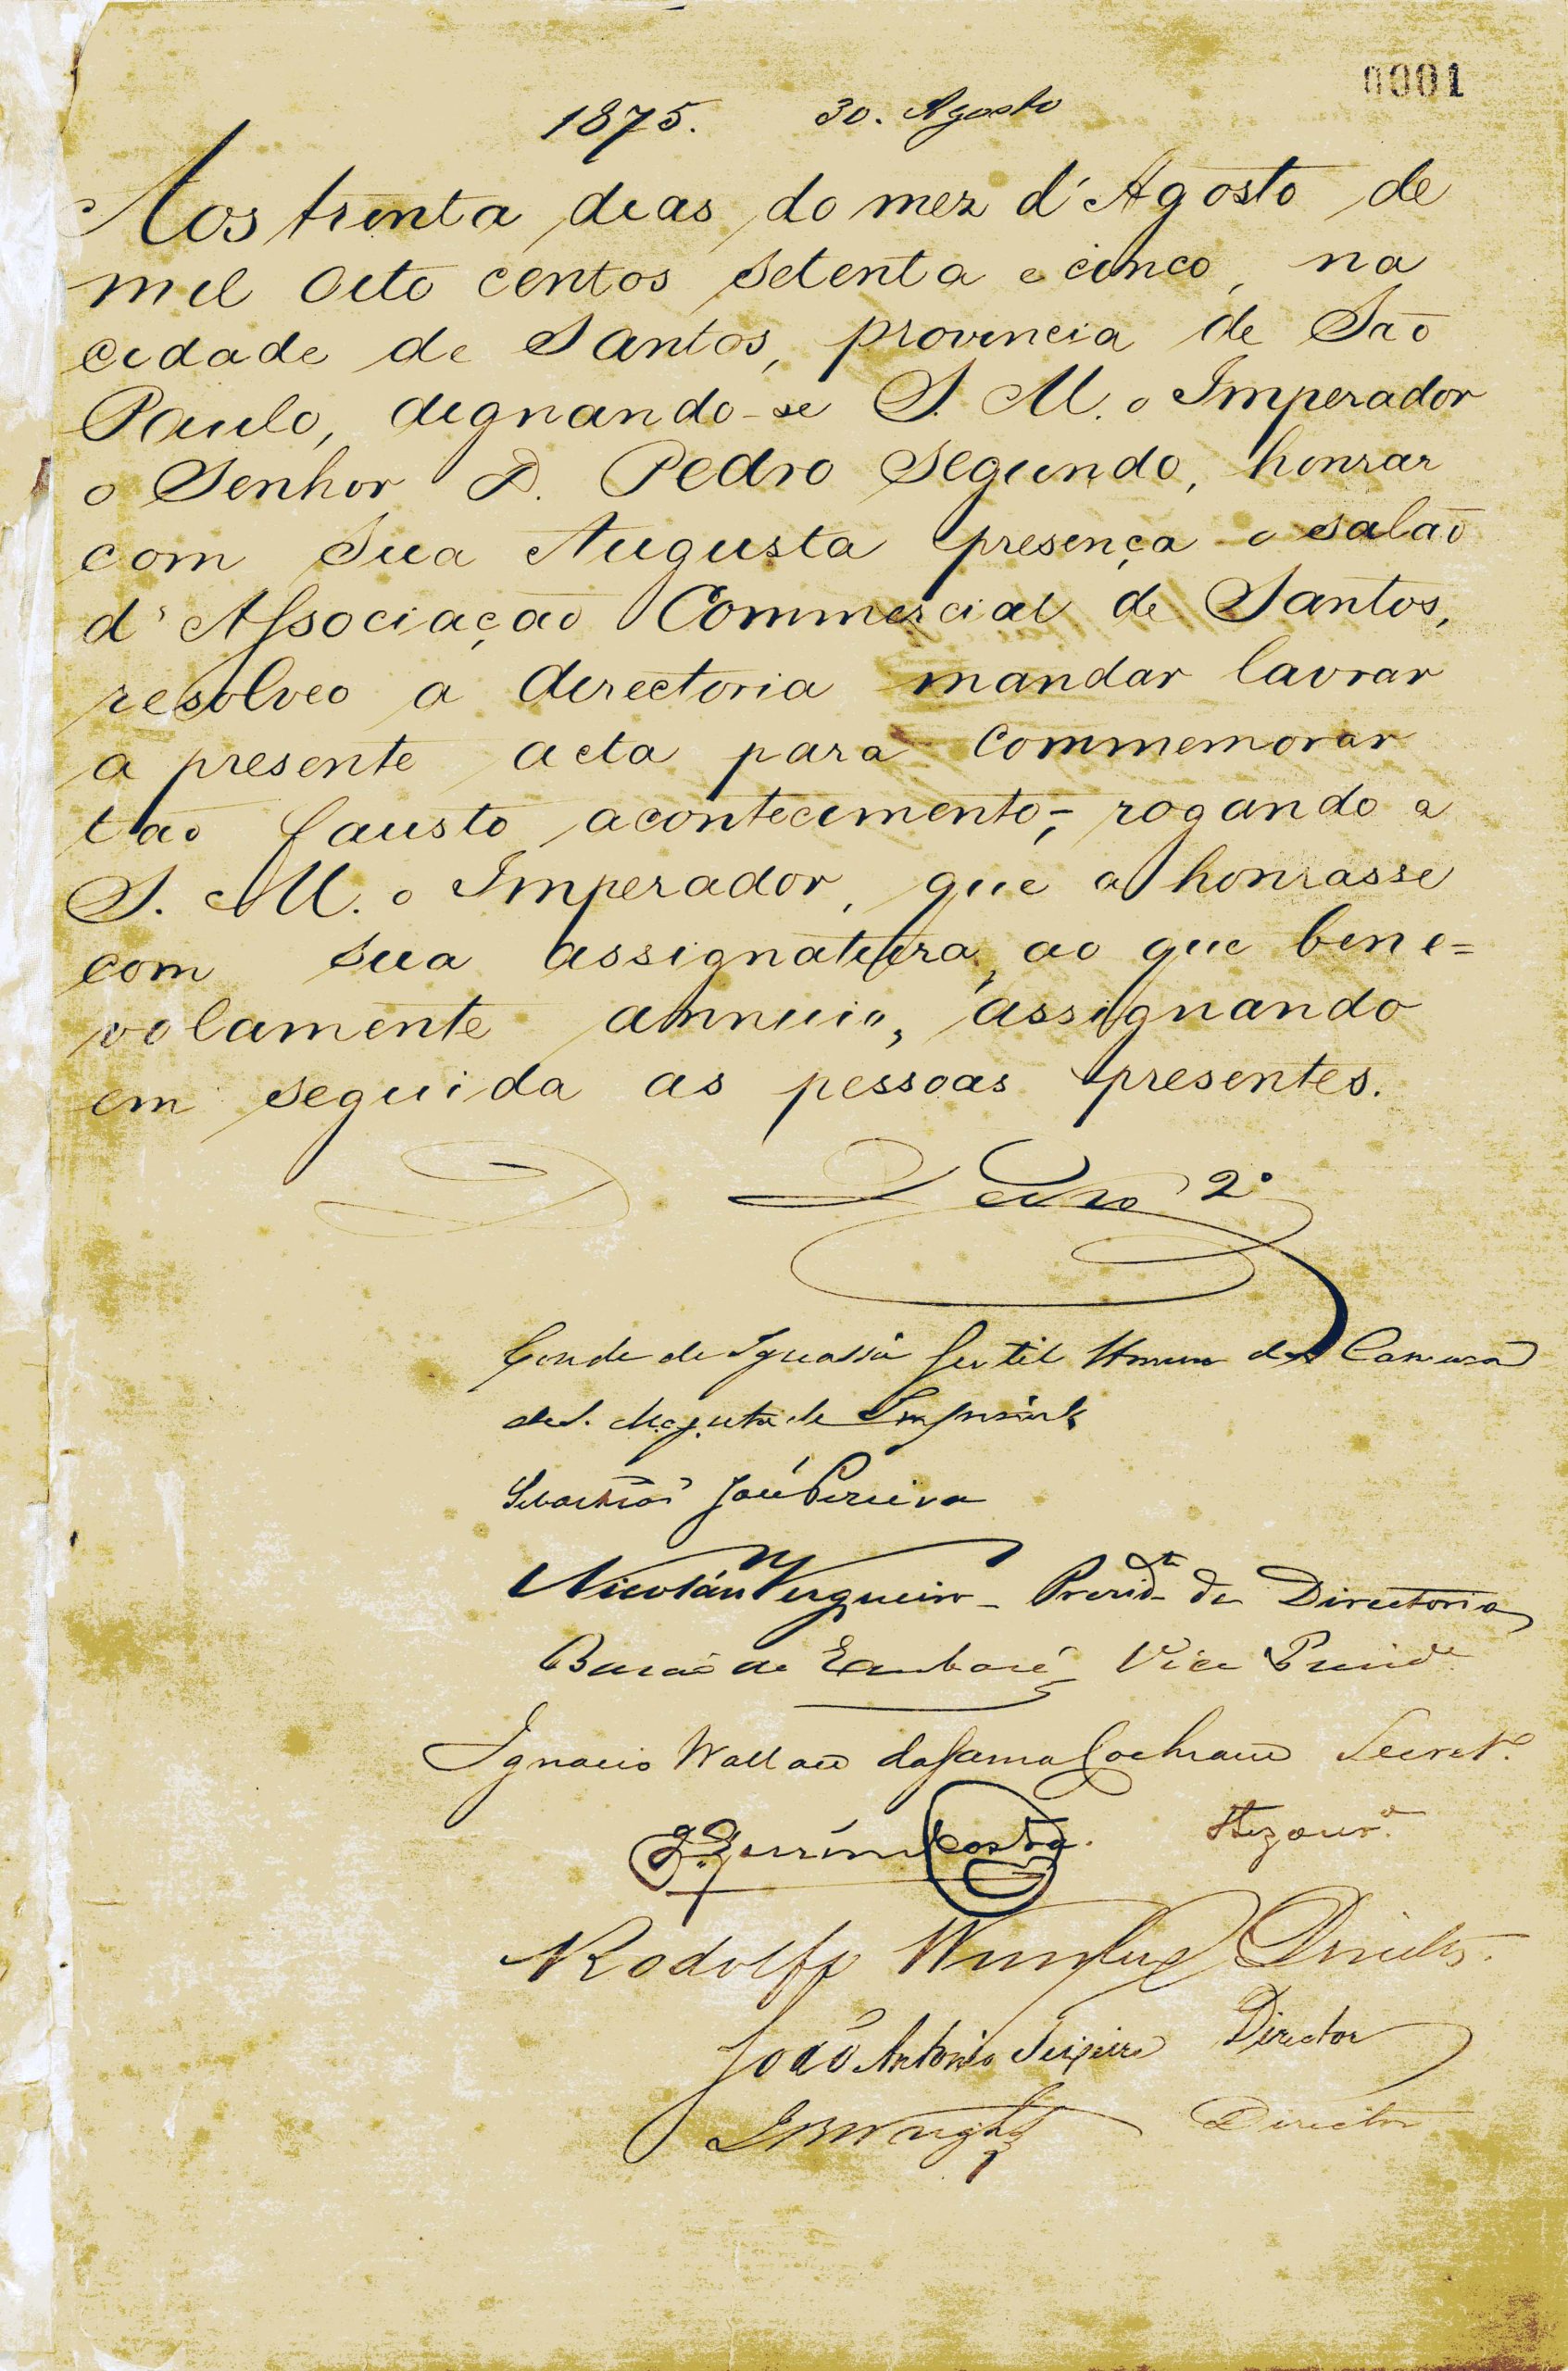 0001
1875. 30. Agosto
Aos trinta dias do mez d'Agosto de
mil oito centos setenta e cinco, na
cidade de Santos, provincia de São
Paulo, dignando-se S. M. o Imperador
o Senhor D. Pedro Segundo, honrar
com Sua Augusta presença o salão
d'Associação Commercial de Santos,
resolveo a directoria mandar lavrar
a presente acta para commemorar
tão fausto acontecimento, rogando a
S. M. o Imperador, que a honrasse
com sua assignatura, ao que bene=
volamente annuio, assignando
em seguida as pessoas presentes.
D. Pedro 2º
Conde de Iguassú Gentil Homem da Camara
de S. Magestade Imperial
Sebastião José Pereira
Nicoláu Vergueiro - Presid.te da Directoria
Barão de Embaré Vice Presid.e
Ignacio Wallace da Gama Cochrane Secret.º
Costa. Thezour.º
Rodolfo Director.
João Antonio Teixeira Director
Wright Director